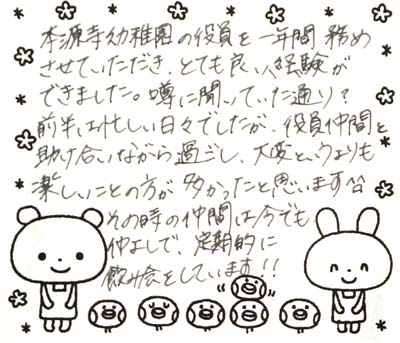 本源寺幼稚園の役員を一年間務め
させていただき、とても良い経験が
できました。噂に聞いていた通り？
前半は忙しい日々でしたが、役員仲間と
助け合いながら過ごし、大変というよりも
楽しいことの方が多かったと思います^^
その時の仲間は今でも
仲よしで、定期的に
飲み会をしています!!